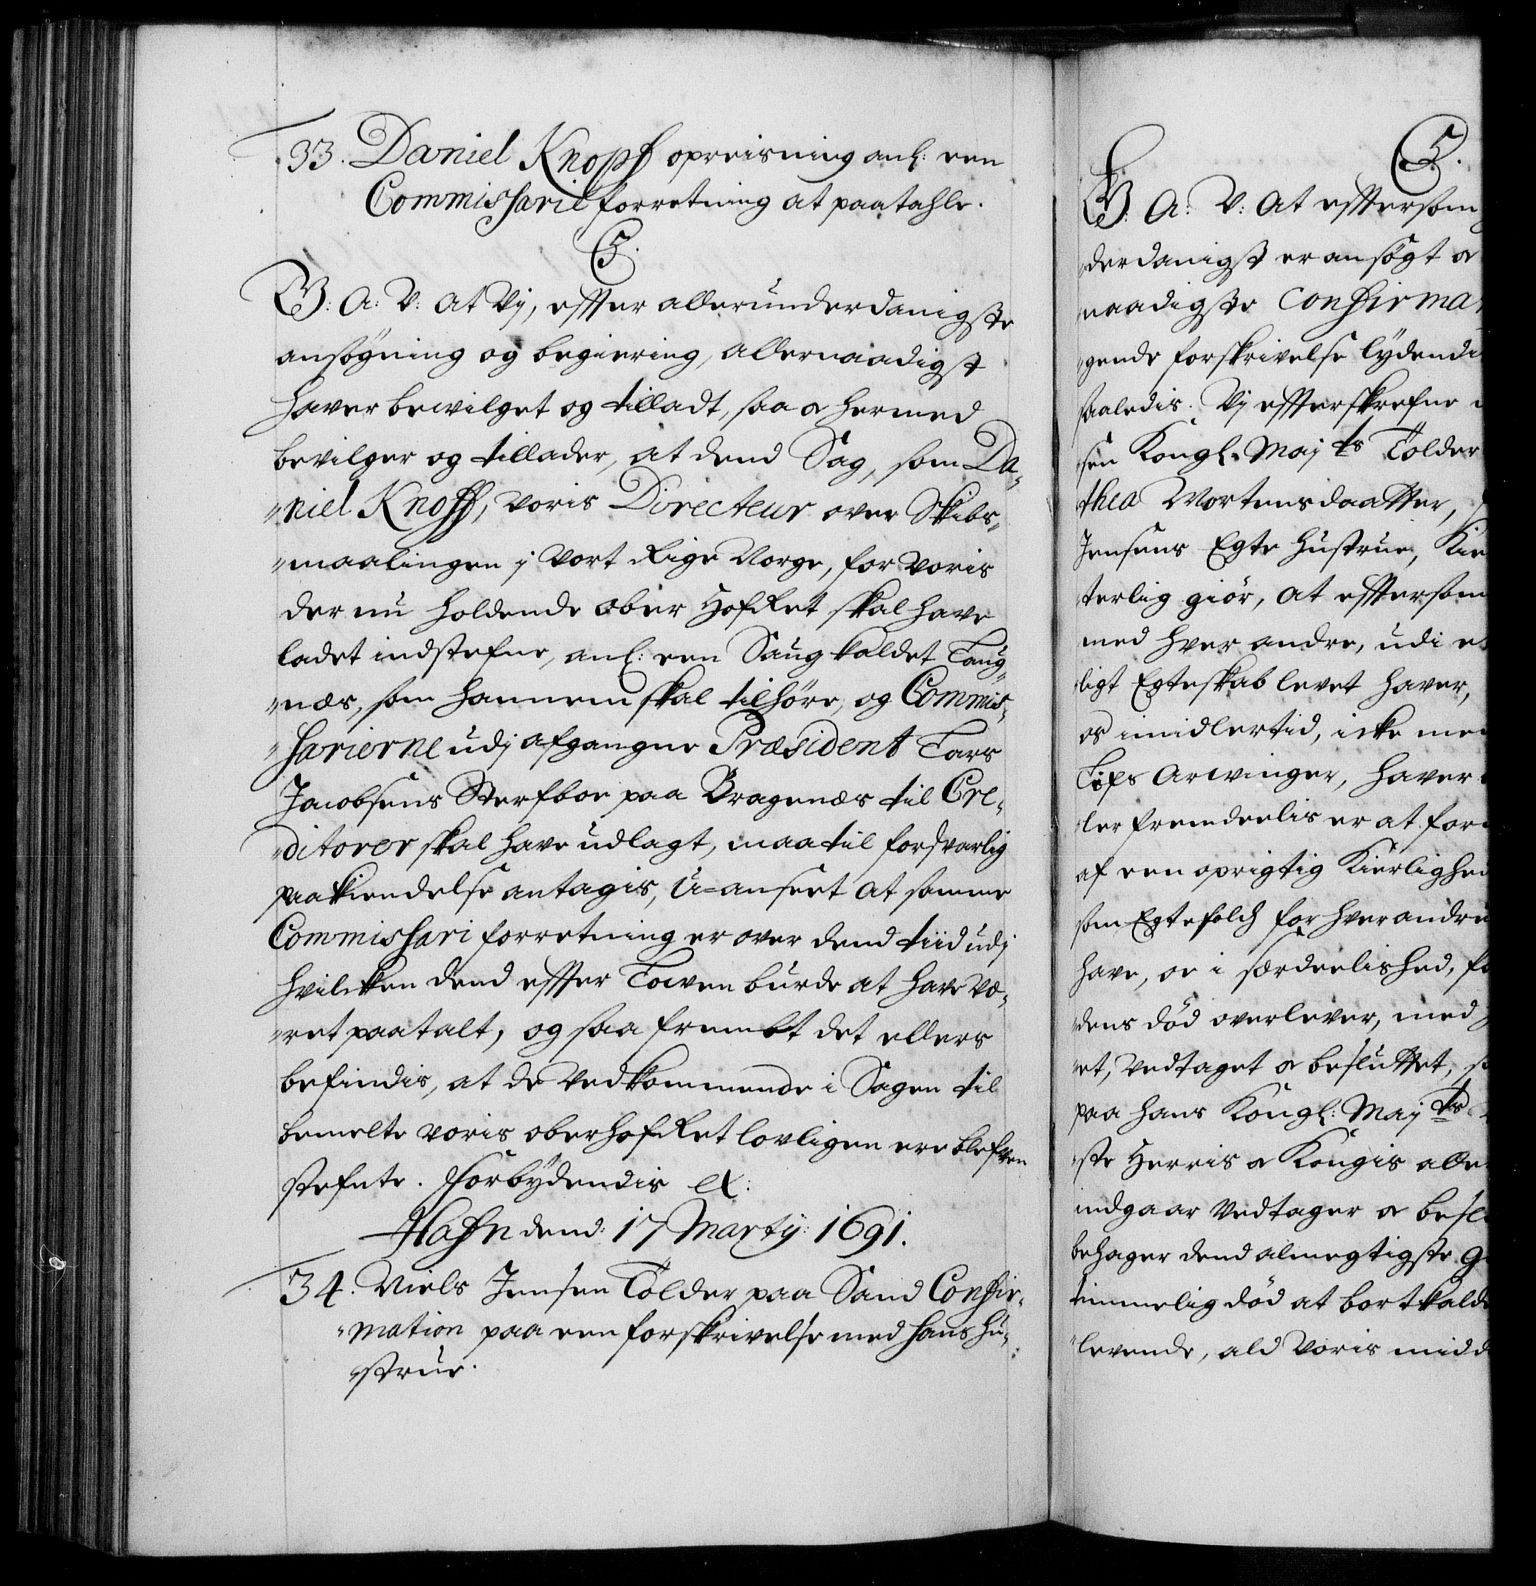 33. Daniel Knopf opreisning anl: een
Commissarie forretning at paatahle.
C5.
G: A: V: At Vij, effter allerunderdanigste
ansøgning og begiering, allernaadigst
haver bevilget og tilladt, saa oc hermed
bevilger og tillader, at dend Sag, som Da-
niel Knoff, voris Directeur over Skibs-
maalingen j vort Rige Norge, for voris
der nu holdende ober HofRet skal have
ladet indstefne, anl: een Saug kaldet Laug-
næs, som hannem skal tilhøre, og Commis-
sarierne udj afgangne Præsident Lars
Jacobsens Sterfboe paa Bragenæs til Cre-
ditorer skal have udlagt, maa til forsvarlig
paakiendelse antagis, u-anseet at samme
Commissari forretning er over dend tiid udj
hvilcken dend effter Loven burde at have væ-
ret paatalt, og saa fremt det ellers
befindis, at de vedkommende i Sagen til
bemelte voris oberhofRet lovligen ere blefven
stefnte. Forbydendis etc:
Hafn dend: 17 Martij: 1691.
34. Niels Jensen Tolder paa Sand Confir-
mation paa een forskrivelse med hans Hu-
strue.
C5.
G: A: V: At efftersom
derdanigst er ansøgt oc
naadigste Confirma
gende forskrivelse lydendi
saaledis. Vij effterskrefne
sen Kongl. Maj ts Tolder
thea Mortensdaatter,
Jensens Egte Hustrue, Kie
terlig giør, at efftersom
med hver andre, udi et
ligt Egteskab levet haver,
os imidlertid, icke med
Lifs Arwinger, haver
ler fremdeelis er at for
af een oprigtig Kierlighed
som Egtefolck for hverandre
have, oc i særdeelished, fo
dens død overlever, med
et, vedtaget oc besluttet, s
paa hans Kongl: Maj ts
ste Herris oc Kongis alle
indgaar vedtager oc beslu
behager dend almegtigste G
timmelig død at bortkalde
levende, ald voris midd